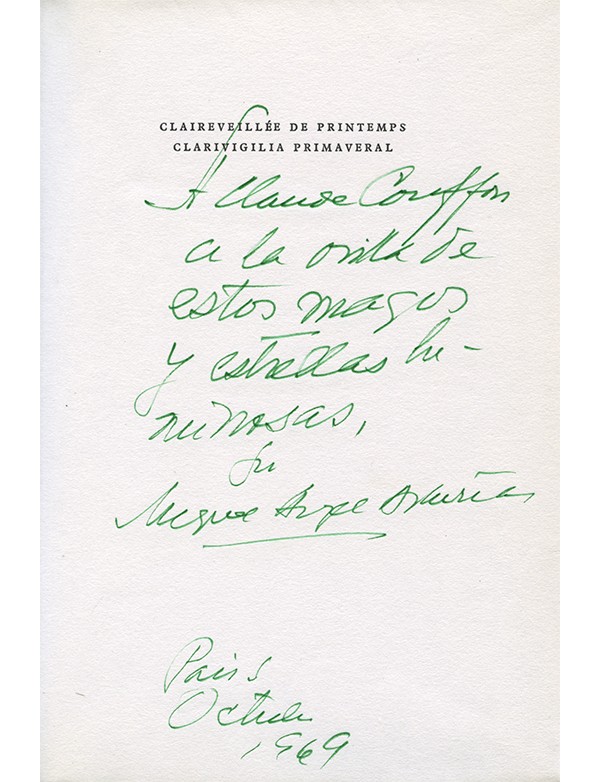 CLAIREVEILLÉE DE PRINTEMPS
CLARIVIGILIA PRIMAVERAL
A Claude Couffon
a la orilla de
estos magos
y estrellas lu-
minosas,
su
Miguel Angel Asturias
Paris
Octubre
1969